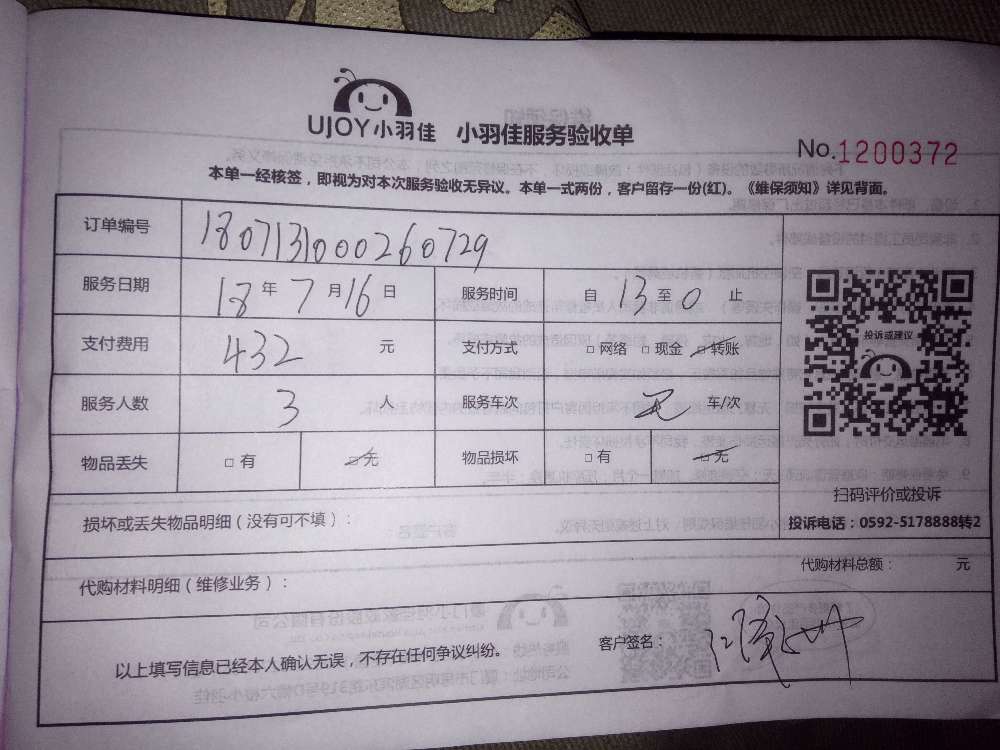 UJOY小羽佳 小羽佳服务验收单
No.1200372
本单一经核签，即视为对本次服务验收无异议。本单一式两份，客户留存一份(红)。《维保须知》详见背面。
订单编号 1807131000260729
服务日期 18 年 7 月 16 日 服务时间 自 13 至 0 止
支付费用 432 元 支付方式 □ 网络 □ 现金 ☑ 转账
服务人数 3 人 服务车次 无 车/次
物品丢失 □ 有 ☑ 无 物品损坏 □ 有 ☑ 无
投诉或建议
扫码评价或投诉
投诉电话：0592-5178888转2
损坏或丢失物品明细（没有可不填）：
代购材料明细（维修业务）： 代购材料总额： 元
以上填写信息已经本人确认无误，不存在任何争议纠纷。 客户签名：